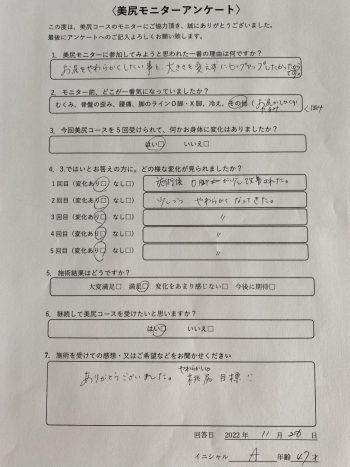 〈美尻モニターアンケート〉
この度は、美尻コースのモニターにご協力頂き、誠にありがとうございました。
最後にアンケートへのご記入よろしくお願い致します。
1. 美尻モニターに参加してみようと思われた一番の理由は何ですか?
お尻をやわらかくしたい事と、大きさを変えずにヒップアップしたかった
です。
2. モニター前、どこが一番気になっていましたか?
むくみ、骨盤の歪み、腰痛、脚のラインO脚・X脚、冷え、
3. 今回美尻コースを5回受けられて、何かお身体に変化はありましたか?
はい□ いいえ□
4. 3.ではいとお答えの方に。どの様な変化が見られましたか?
1回目(変化あり□ なし□) 施術後 O脚が少し改善された。
2回目(変化あり□ なし□) 少しづつ やわらかくなってきた。
3回目(変化あり□ なし□) 〃
4回目(変化あり□ なし□) 〃
5回目(変化あり□ なし□) 〃
5. 施術結果はどうですか?
大変満足□ 満足□ 変化をあまり感じない□ 今後に期待□
6. 継続して美尻コースを受けたいと思いますか?
はい□ いいえ□
7. 施術を受けての感想・又はご希望などをお聞かせください
やわらかい
ありがとうございました。 桃尻目標
回答日 2022年 11月 28日
イニシャル A 年齢 47才